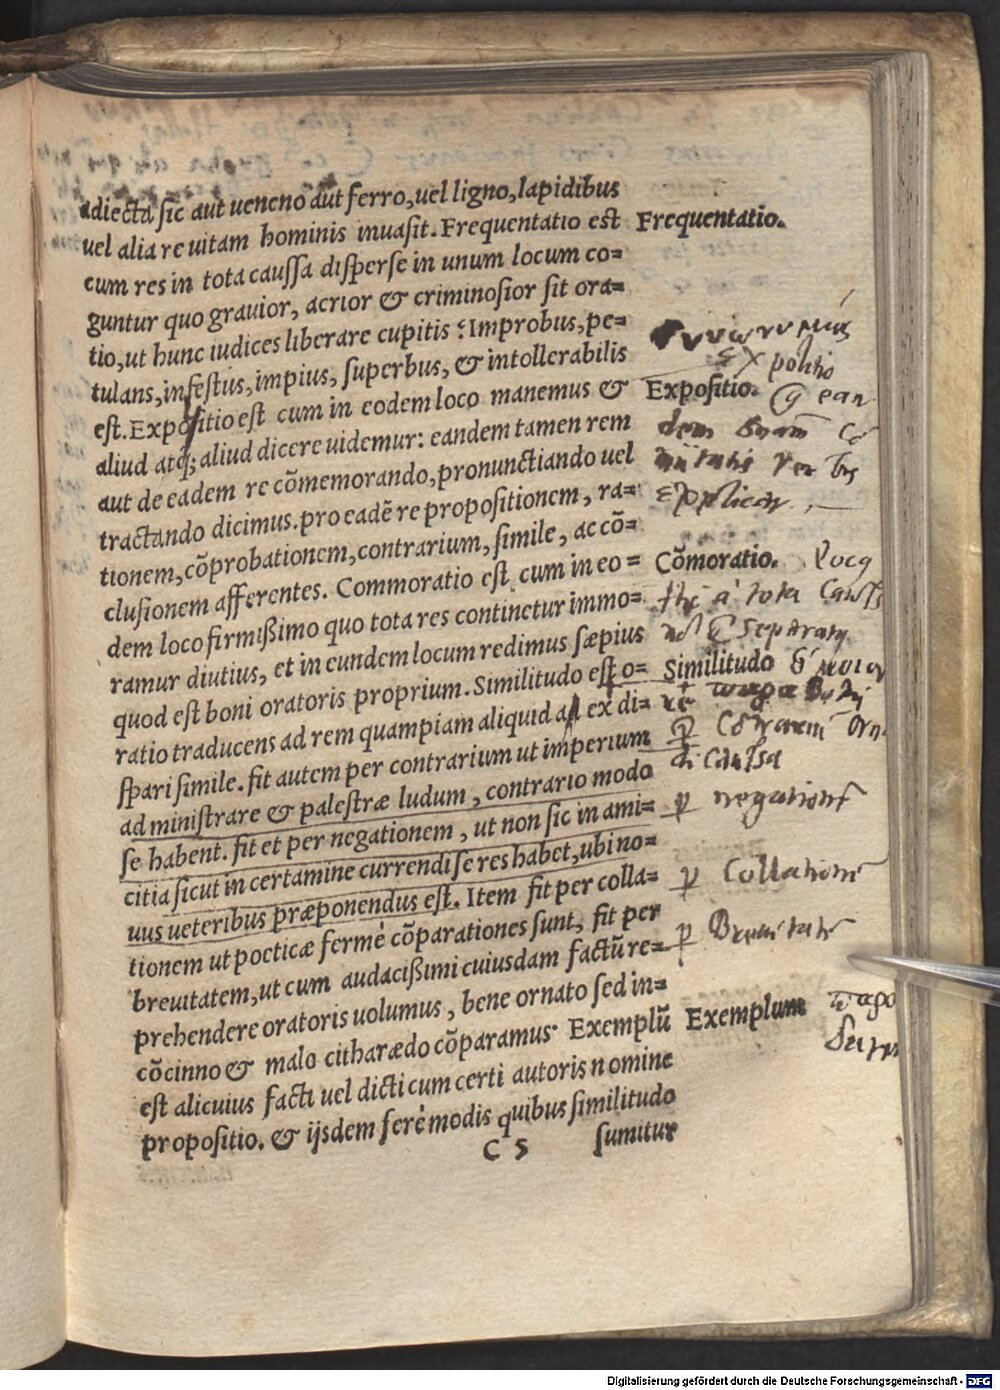 adiecta sic aut ueneno aut ferro, uel ligno, lapidibus
uel alia re uitam hominis inuasit. Frequentatio est
Frequentatio.
cum res in tota caussa disperse in unum locum co=
guntur quo grauior, acrior & criminosior sit ora=
tio, ut hunc iudices liberare cupitis ? Improbus, pe=
tulans, infestus, impius, superbus, & intollerabilis
expolitio
est. Expositio est cum in eodem loco manemus &
Expositio.
aliud atq; aliud dicere uidemur: eandem tamen rem
aut de eadem re cōmemorando, pronunctiando uel
tractando dicimus. pro eadē re propositionem, ra=
tionem, cōprobationem, contrarium, simile, ac cō=
clusionem afferentes. Commoratio est cum in eo =
Cōmoratio.
dem loco firmißimo quo tota res continetur immo=
à tota
ramur diutius, et in eundem locum redimus sæpius
quod est boni oratoris proprium. Similitudo est o=
Similitudo
ratio traducens ad rem quampiam aliquid al ex di=
spari simile. fit autem per contrarium ut imperium
administrare & palestræ ludum, contrario modo
se habent. fit et per negationem, ut non sic in ami=
p negationē
citia sicut in certamine currendi se res habet, ubi no=
uus ueteribus præponendus est. Item fit per colla=
p Collationē
tionem ut poeticæ fermè cōparationes sunt, fit per
breuitatem, ut cum audacißimi cuiusdam factū re=
p Breuitatē
prehendere oratoris uolumus, bene ornato sed in=
cōcinno & malo citharædo cōparamus· Exemplū
Exemplum
est alicuius facti uel dicti cum certi autoris nomine
propositio. & ijsdem ferè modis quibus similitudo
C 5 sumitur
Digitalisierung gefördert durch die Deutsche Forschungsgemeinschaft - DFG